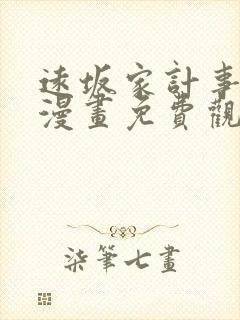 遠坂家計事
漫畫免費觀
柒筆七畫